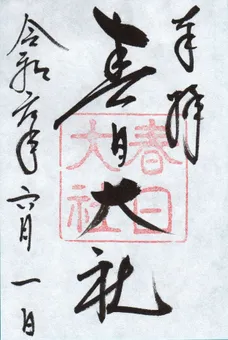 奉拝
春日大社
春日大社
令和元年六月一日